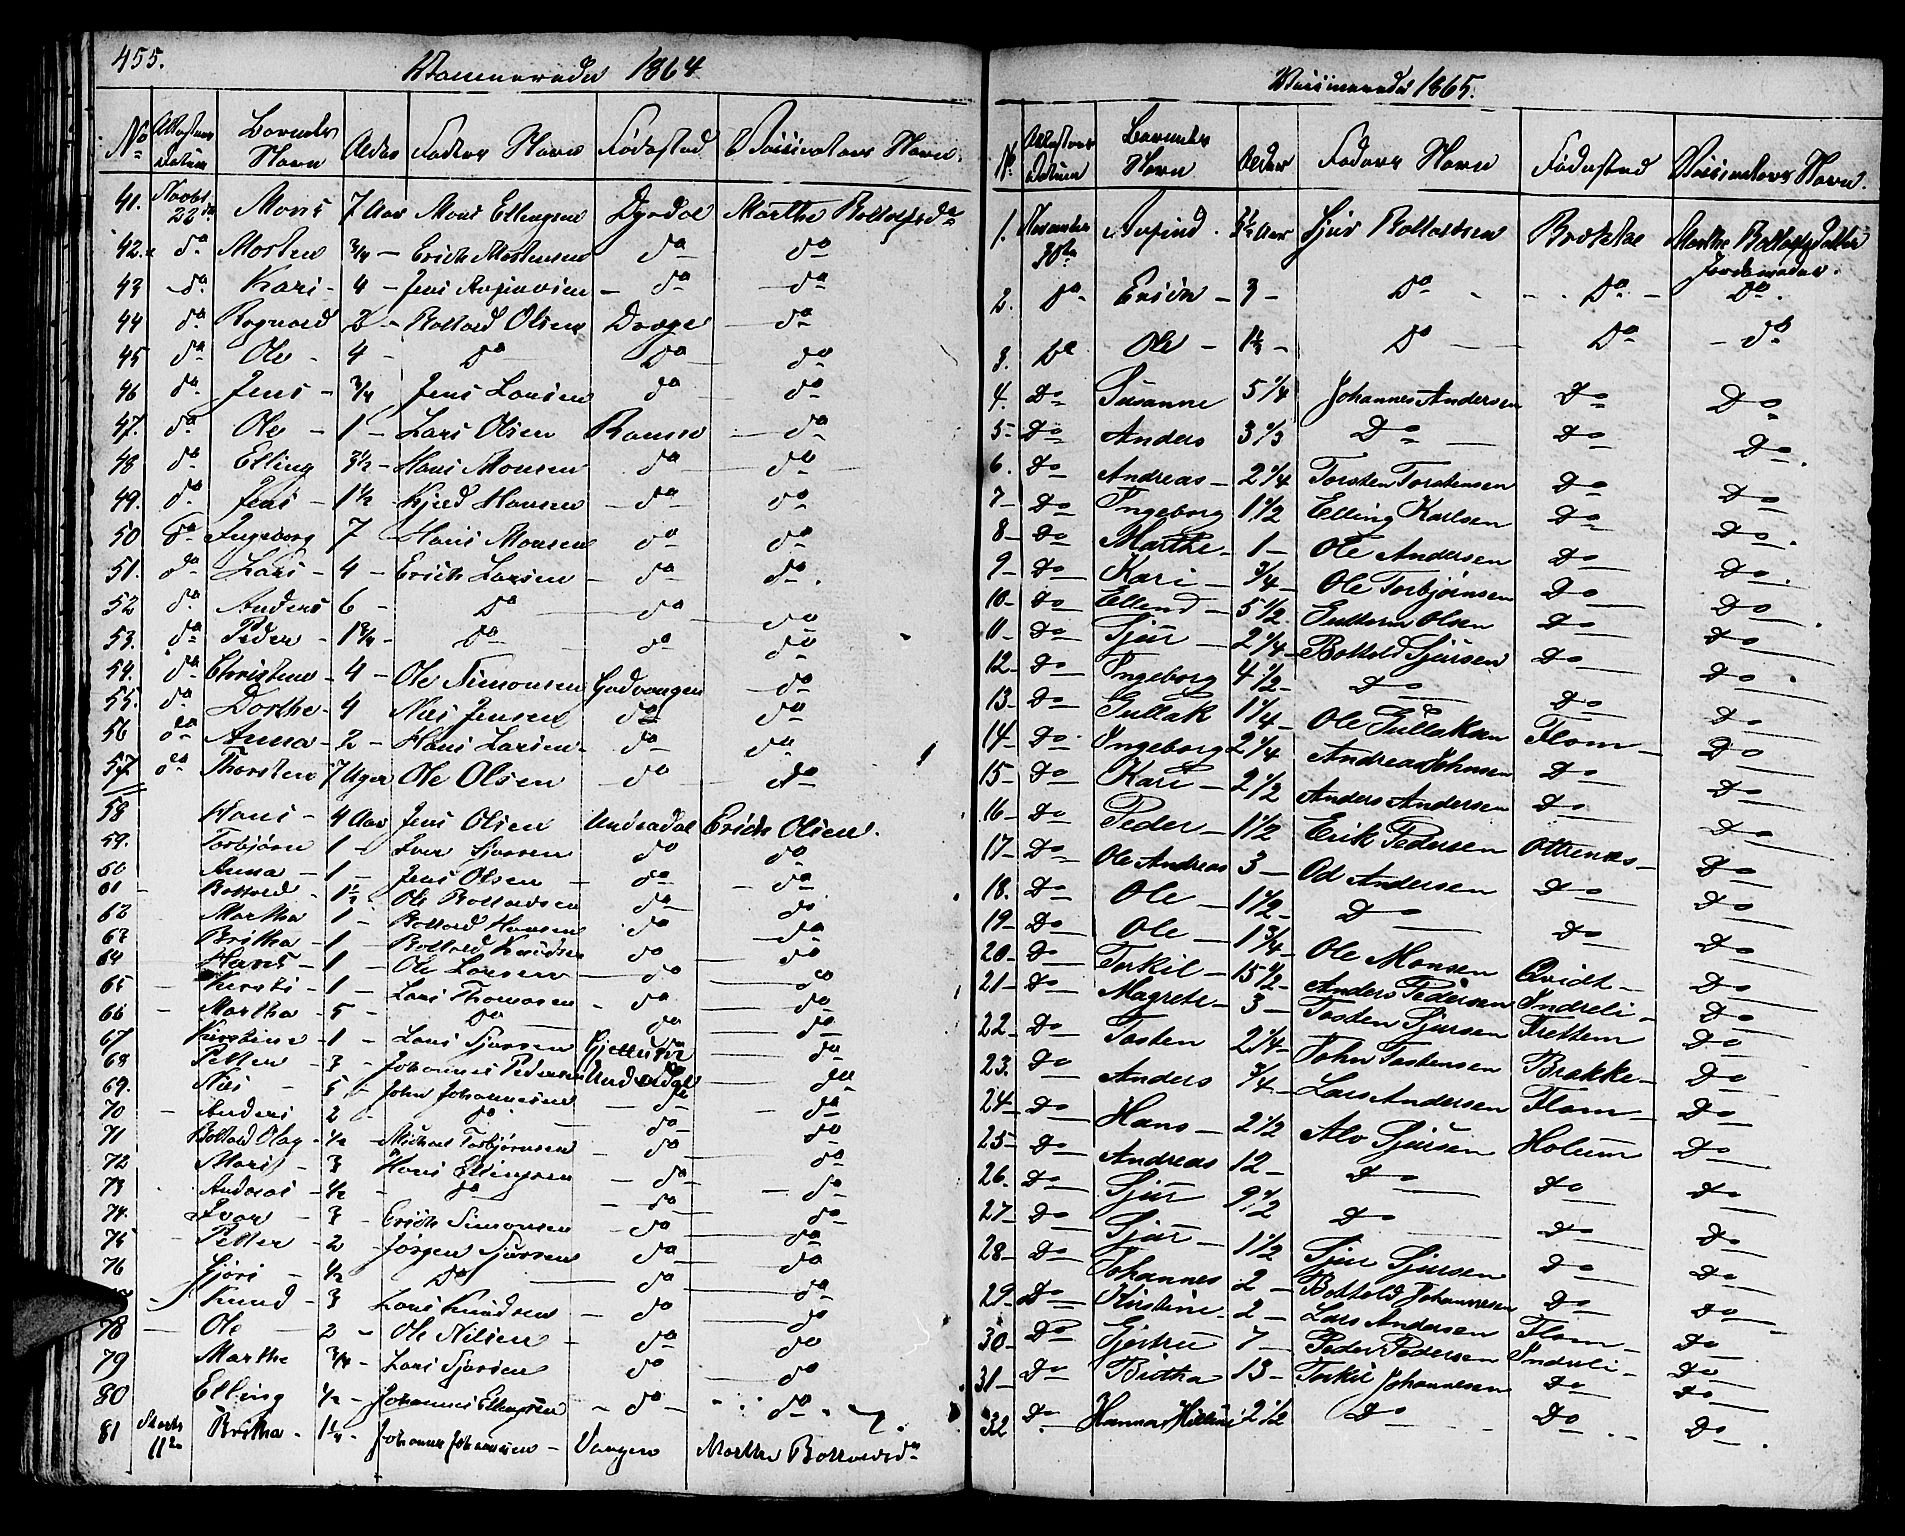 455.
Vaccinerede 1864
No Attestens Datum Barnets Navn Alder Faders Navn Fødested Vaccinatørs Navn
41. Novbr 22de Mons 7 Aar Mons Ellingsen Dyrdal Marthe Bottolfsdr
42. do Mosten 3/4 – Erich Mostensen do do
43 do Kari – 4 – Jens – do do
44 do Ragnald 2 – Bottold Olsen Dræge do
45 do Ole – 4 – do do do
46 do Jens – 3/4 Jens Larsen do do
47. do Ole – 1 – Lars Olsen Ramsø do
48 do Elling 3 1/2 – Hans Monsen do do
49. do Jens – 1 1/2 – Kjeld Hansen do do
50 do Ingeborg 7 Hans Monsen do do
51. do Lars – 4 – Erich Larsen do do
52 do Anders 6 – do do do
53. do Peder – 1 3/4 – do do do
54. do Christine – 4 – Ole Simonsen Gudvangen do
55. do Dorthe – 4 Nils Jensen do do
56 do Anna – 2 – Hans Larsen – do do
57 do Thorsten 7 Uger Ole Olsen do do
58 Hans – 4 Aar Jens Olsen Undredal Erich Olsen.
59. Torbjørn 1 – Iver Sjursen do do
60 Anna – 1 – Jens Olsen do do
61 Bottold – 1 1/2 Ole Bottoldsen do do
62 Martha 1 – Bottold Hansen do do
63 Britha – 1 – Bottold Knudsen do do
64 Hans – 1 – Ole Larsen do do
65 Kirsti – 1 – Lars Thomasen do do
66 Martha – 5 – do do do
67 Kirstine – 1 – Lars Sjursen do
68 Petter – 3 – Johannes Pedersen Undredal do
69. Nils 5 – John Johannesen do do
70 Anders 2 – do do do
71 Bottold Olag – 1/2 – Michael Torbjørnsen do do
72 Mari – 3 Hans Ellingsen do do
73 Andreas – 1/2 – do do do
74. Ivar – 3 – Erich Simonsen do do
75 Petter – 2 – Jørgen Sjursen do do
76 Gjøri – 1/2 do do do
Knud – 3 Lars Knudsen do do
78 Ole 2 – Ole Nilsen do do
79 Marthe 3/4 – Lars Sjursen do do
80 Elling 1/2 – Johannes Ellingsen do do
81 Marts 11te Britha – 1 1/4 – Johannes Johannesen – Vangen Marthe Bottolfsdr
Vaccinerede 1865.
No. Attestens Datum Barnets Navn Alder Faders Navn Fødested Vaccinatørs Navn.
1. November 30te 5 1/2 Aar Sjur Bottoldsen Brække Marthe Bottolfsdatter
2. do Erich – 3 – Do Do Do.
3. do Ole – 1 1/3 – Do Do do
4. Do Susanne 5 1/4 Johannes Andersen Do Do
5 – Do Anders 3 1/3 Do Do Do
6. Do Andreas – 2 1/4 Torsten Torstensen Do Do
7 – Do Ingeborg 1 1/2 Elling Karlsen Do Do
8 – Do Marthe – 1 – Ole Andersen Do Do
9 – Do Kari – 3/4 – Ole Torbjørnsen Do Do
10 – Do Ellend – 5 1/2 Guttorm Olsen Do Do
11 – Do Sjur – 2 1/4 – Bottold Sjursen Do Do
12 – Do Ingeborg 4 1/2 – Do Do Do
13 – Do Gullak 1 1/4 – Ole Gullaksen Flom – Do
14 – Do Ingeborg 2 1/4 Andreas Johnsen Do Do
15 – Do Kari – 2 1/2 Anders Andersen Do Do
16 – Do Peder – 1 1/2 Erik Pedersen Otternæs – Do
17 – Do Ole Andreas 3 – Od Andersen Do Do
18. Do Ole – 1 1/2 – Do Do Do
19 – Do Ole – 1 3/4 – Ole Monsen Qvidt – Do
20 – Do Torkil – 15 1/2 – Anders Pedersen Indreli – Do
21 – Do Magrete – 3 – Tosten Sjursen Frettem Do
22 – Do Tosten 2 1/4 – John Tostensen Brække – Do
23. Do Anders 3/4 – Lars Andersen Flom – Do
24 – Do Hans – 2 1/2 Alv Sjursen Holum Do
25 – Do Andreas 12 – Do Do Do
26. Do Sjur 9 1/2 Do Do Do
27 – Do Sjur – 1 1/2 Sjur Sjursen Do Do
28 – Do Johannes 2 – Bottold Johannesen Do Do
29 – Do Kirstine – 2 – Lars Andersen Flom – Do
30 – Do Gjertru – 7 – Peder Pedersen Indreli – Do
31 – Do Britha 13 – Torkil Johannesen Do Do
32 Do Hanna 2 1/2 Do Do Do